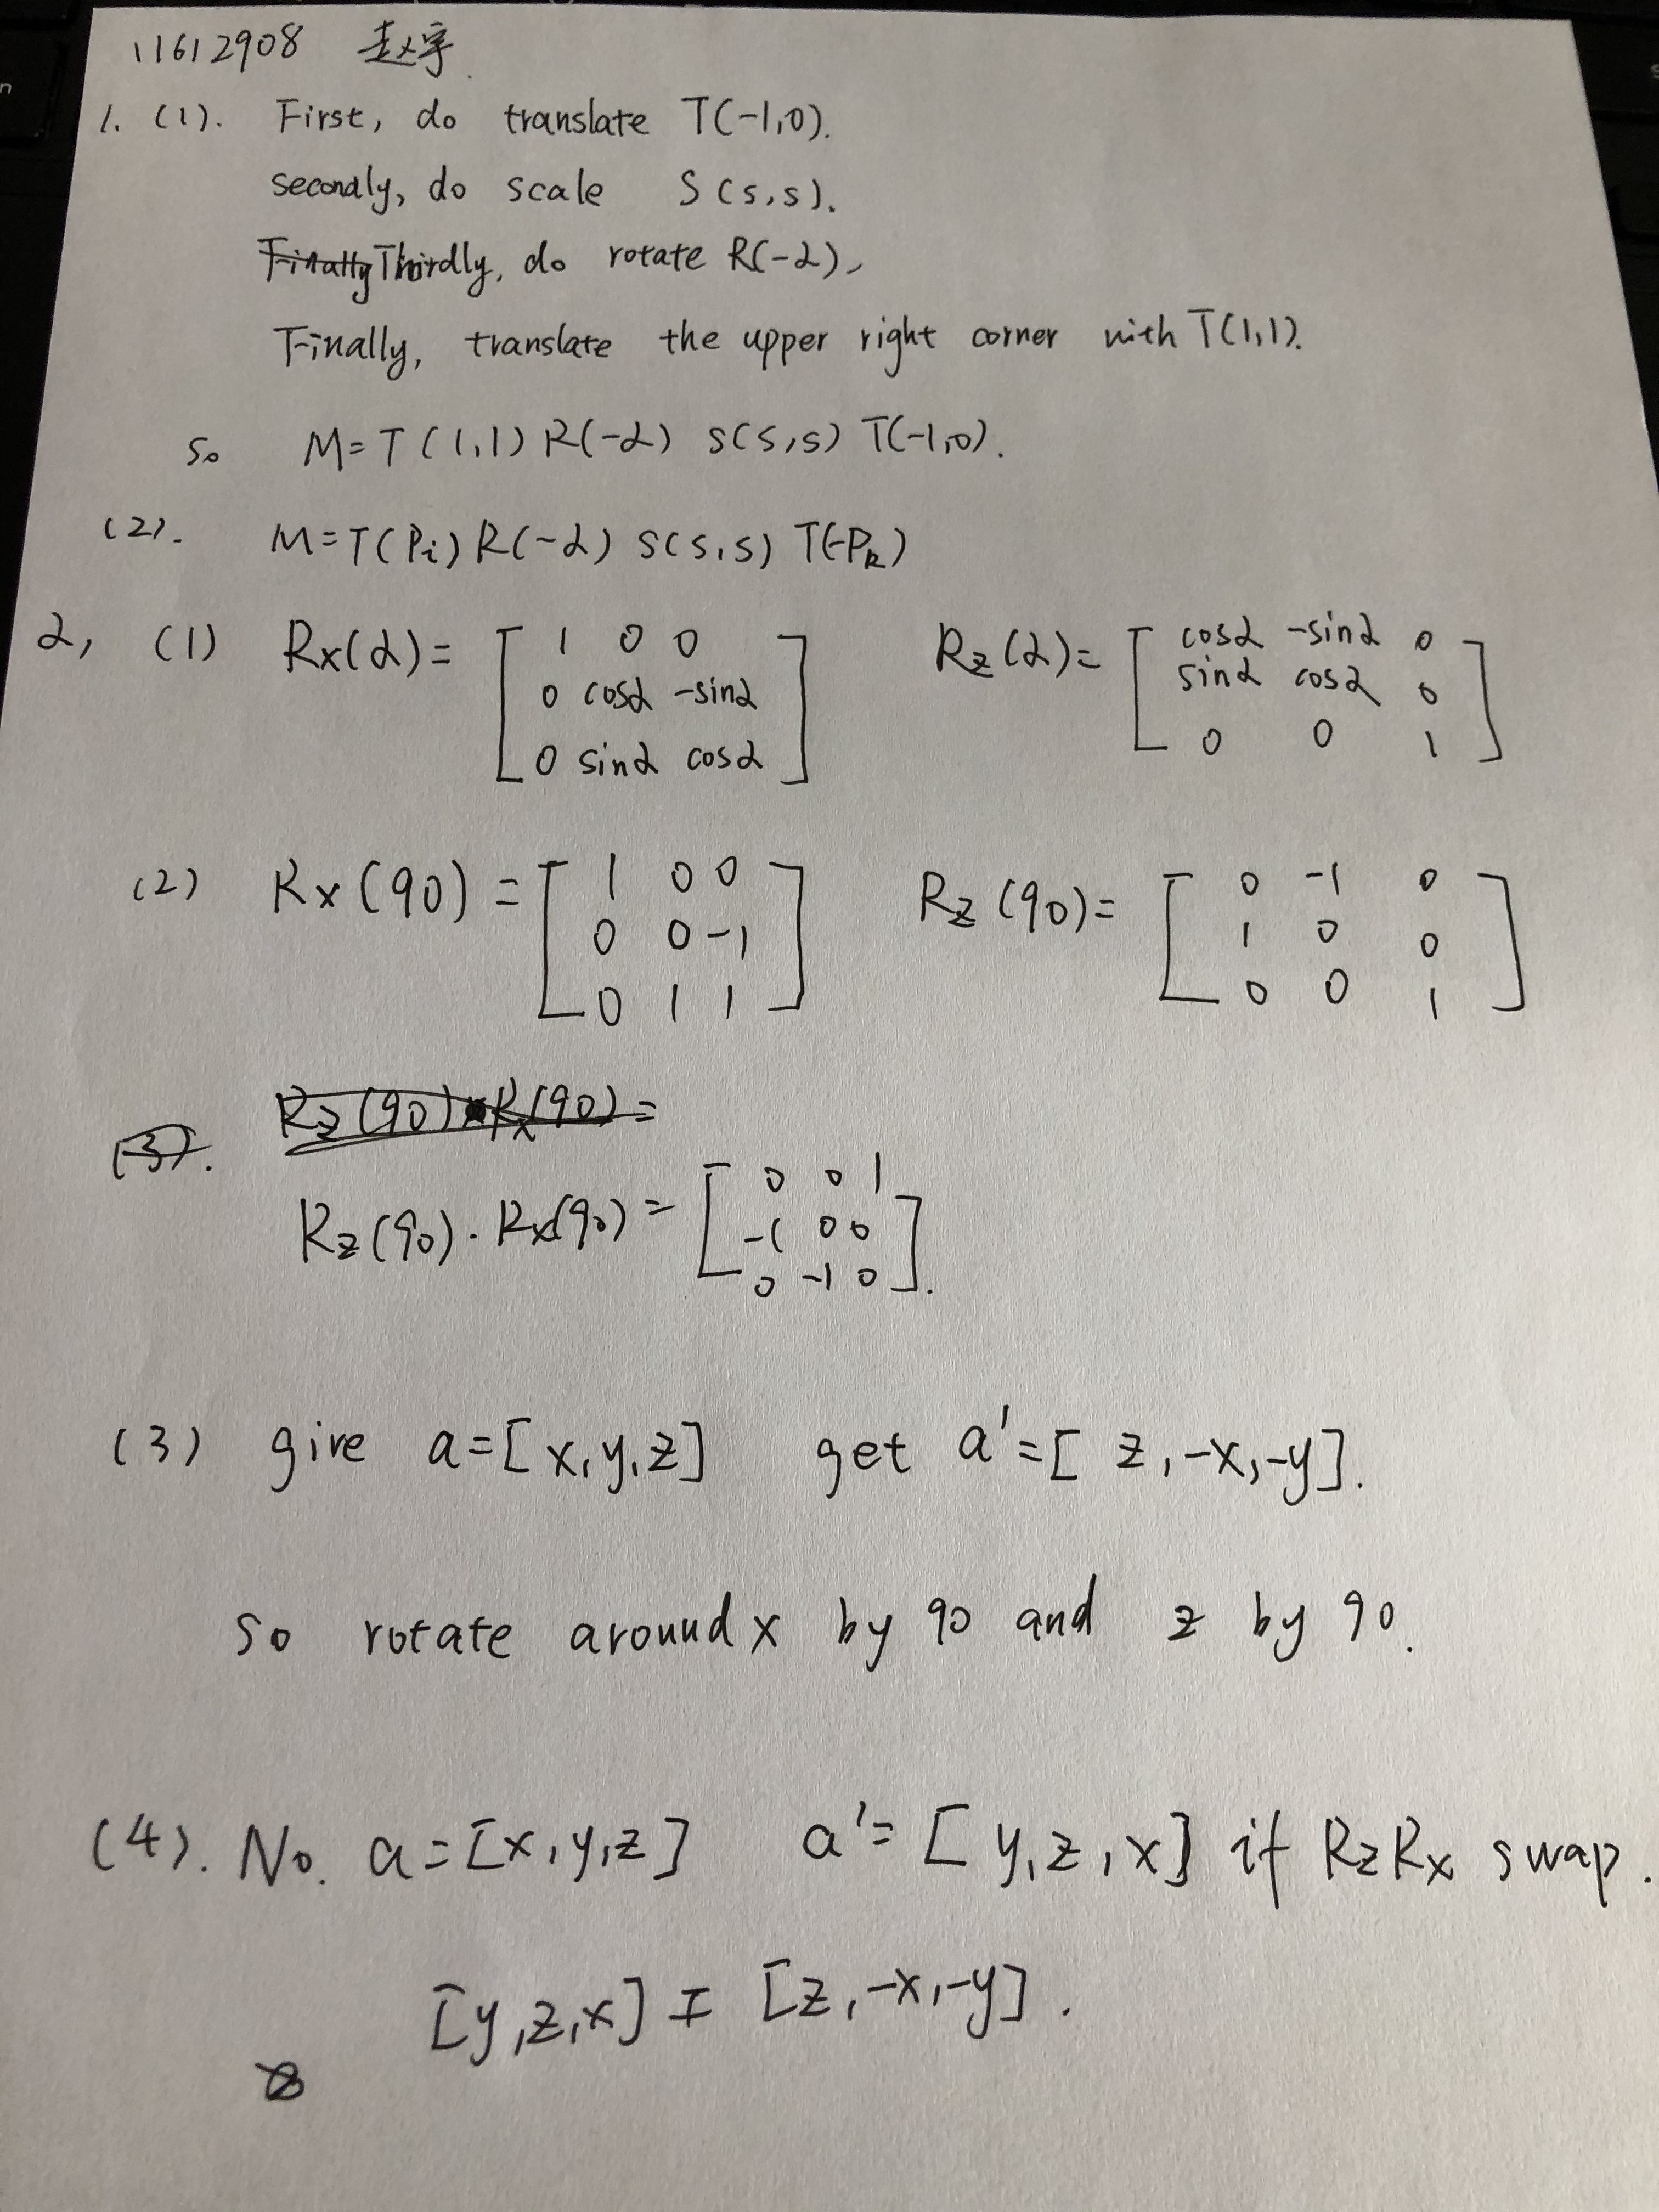 11612908 赵宇
1. (1). First, do translate T(-1,0).
secondly, do scale S(s,s).
Finally Thirdly, do rotate R(-α),
Finally, translate the upper right corner with T(1,1).
so M=T(1,1) R(-α) S(s,s) T(-1,0).
(2). M=T(Pi) R(-α) S(s,s) T(-Pk)
2, (1) Rx(α)= [ 1 0 0 Rz(α)= [ cosα -sinα 0
0 cosα -sinα sinα cosα 0
0 sinα cosα ] 0 0 1 ]
(2) Rx(90) = [ 1 0 0 Rz(90)= [ 0 -1 0
0 0 -1 1 0 0
0 1 1 ] 0 0 1 ]
Rz(90) Rx(90) =
(3).
Rz(90) · Rx(90) = [ 0 0 1
-1 0 0
0 -1 0 ].
(3) give a=[x,y,z] get a'=[ z,-x,-y].
so rotate around x by 90 and z by 90.
(4). No. a=[x,y,z] a'= [ y,z,x] if RzRx swap.
[y,z,x] ≠ [z,-x,-y].